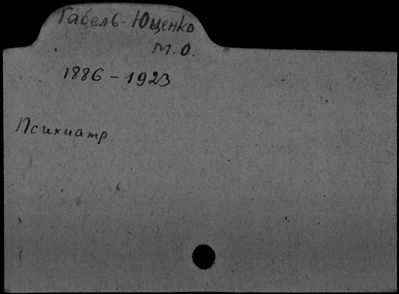 Габель-Ющенко
М.О.
1886-1923
Психиатр